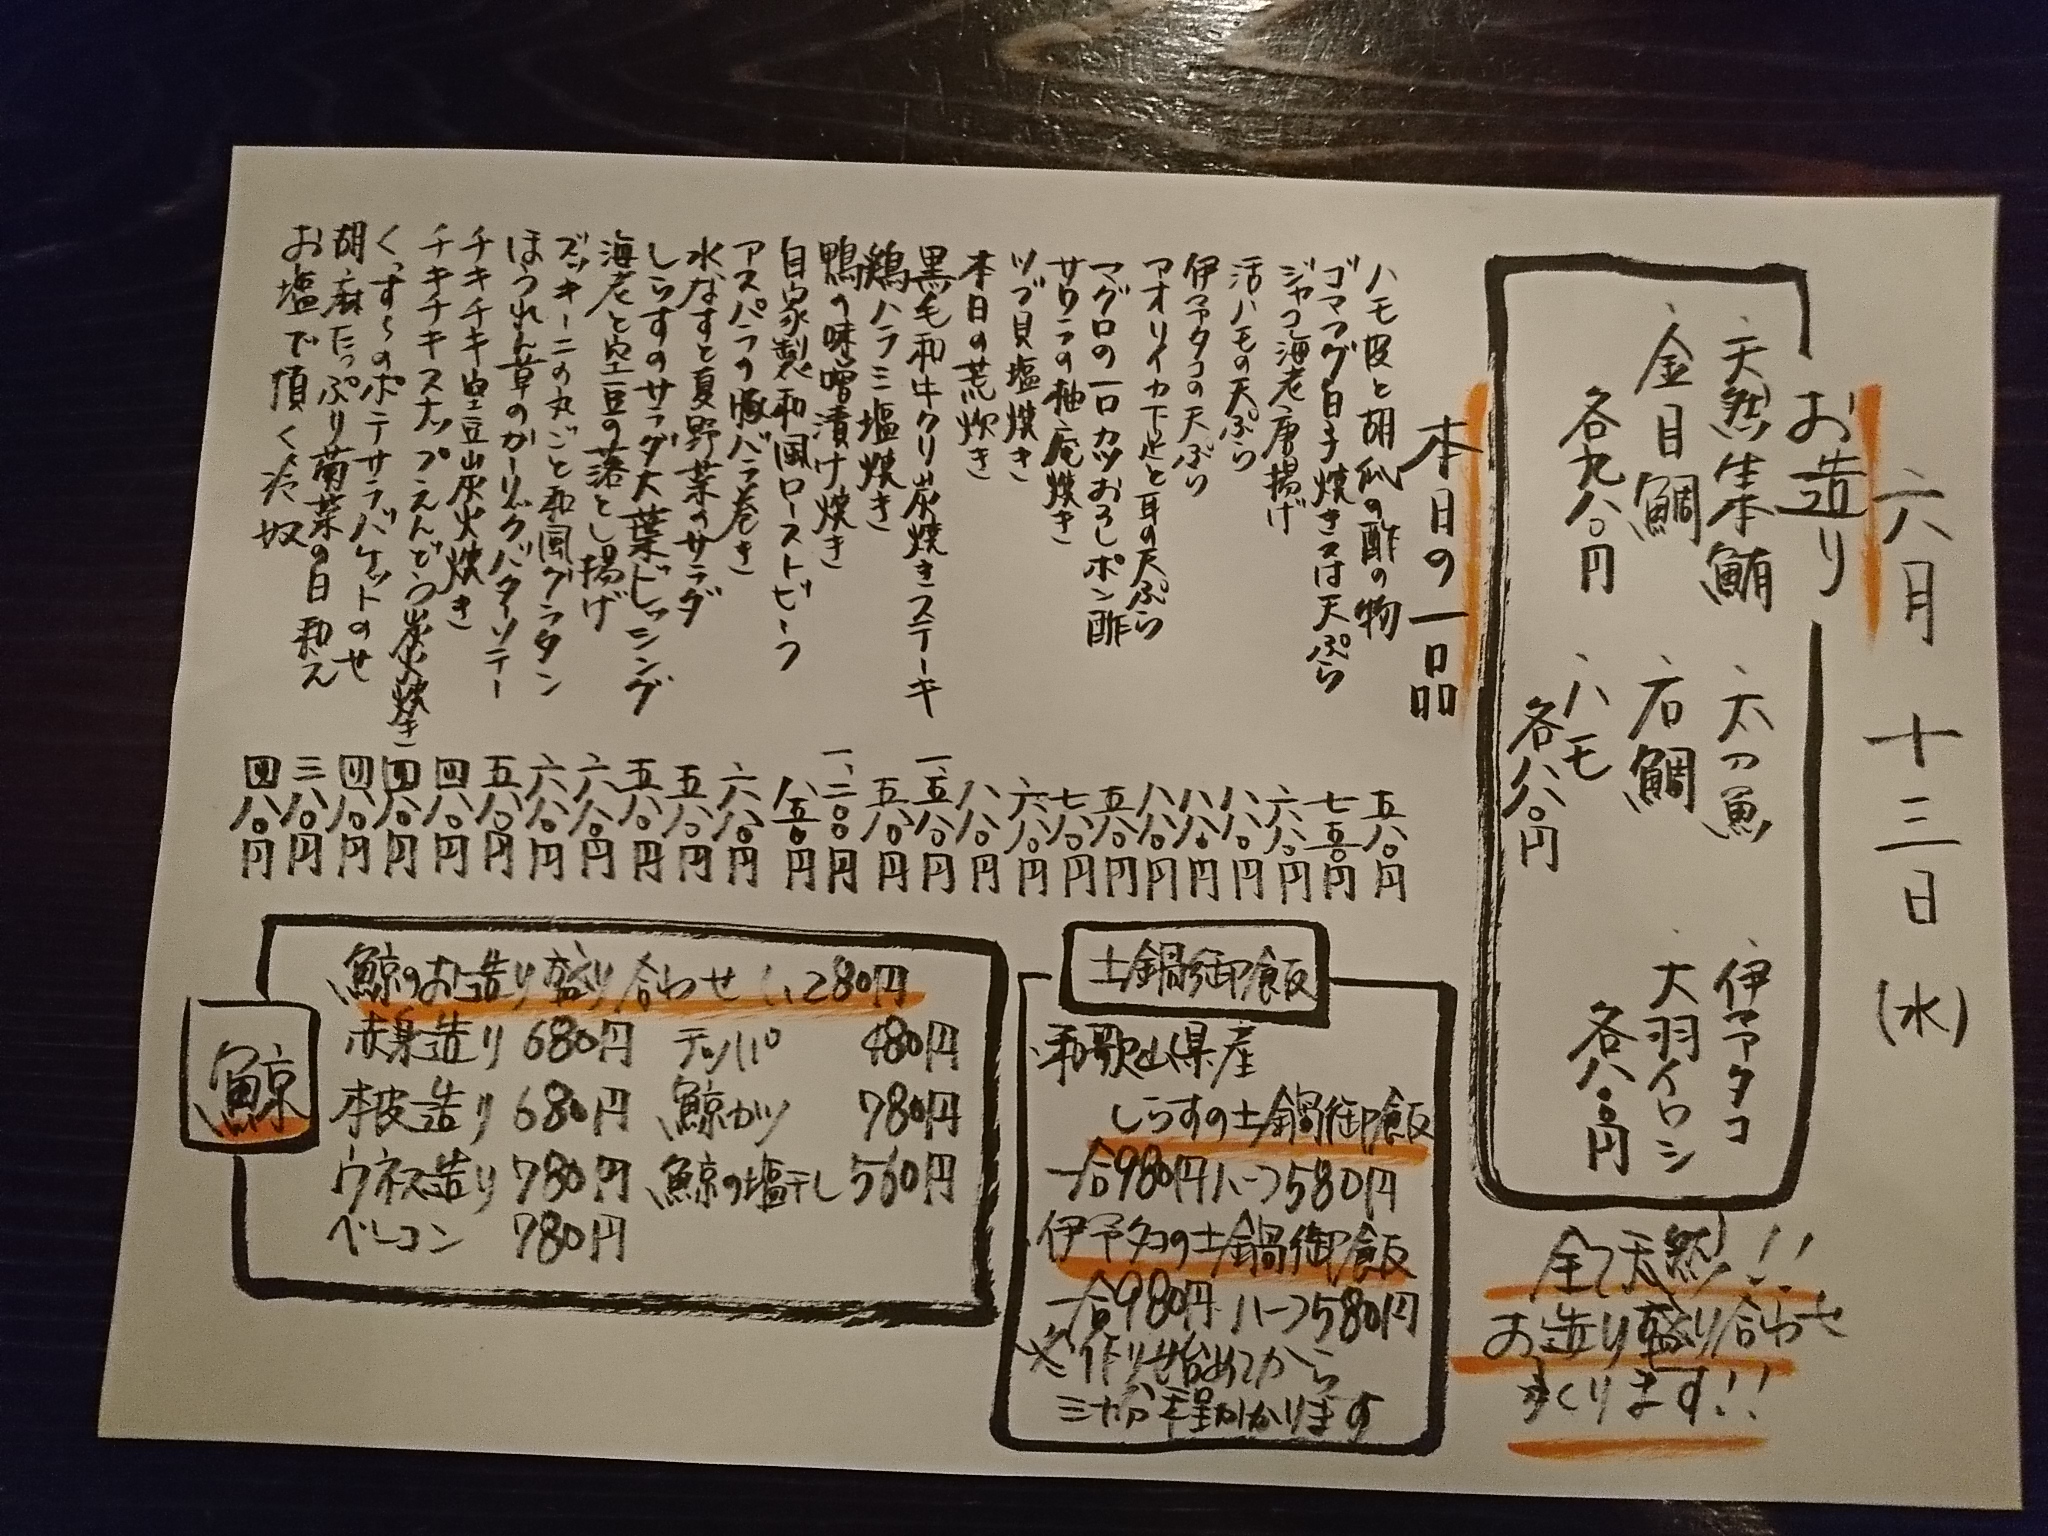 六月十三日(水)
お造り
、天然生本鮪
、金目鯛
各九八〇円
、太刀魚
、石鯛
、ハモ
各八八〇円
、伊予タコ
、大羽イワシ
各八〇〇円
全て天然!!
お造り盛り合わせ
承ります!!
本日の一品
ハモ皮と胡瓜の酢の物 五八〇円
ゴマフグ白子焼き又は天ぷら 七五〇円
ジャコ海老唐揚げ 六八〇円
活ハモの天ぷら 八八〇円
伊予タコの天ぷら 八八〇円
アオリイカ下足と耳の天ぷら 八八〇円
マグロの一口カツおろしポン酢 五八〇円
サワラの柚庵焼き 七八〇円
ツブ貝塩焼き 六八〇円
本日の荒炊き 八八〇円
黒毛和牛クリ炭焼きステーキ 一、五八〇円
鶏ハラミ塩焼き 五八〇円
鴨の味噌漬け焼き 一、二〇〇円
自家製和風ローストビーフ 八五〇円
アスパラの豚バラ巻き 六八〇円
水なすと夏野菜のサラダ 五八〇円
しらすのサラダ大葉ドレッシング 五八〇円
海老と空豆の落とし揚げ 六八〇円
ズッキーニの丸ごと和風グラタン 六八〇円
ほうれん草のガーリックバターソテー 五八〇円
チキチキ空豆炭火焼き 四八〇円
チキチキスナップえんどう炭火焼き 四八〇円
くんすうのポテサラバケットのせ 四八〇円
胡麻たっぷり菊菜の白和え 三八〇円
お塩で頂く冷奴 四八〇円
土鍋御飯
、和歌山県産
しらすの土鍋御飯
一合980円ハーフ580円
、伊予タコの土鍋御飯
一合980円ハーフ580円
※作り始めてから
三十分程かかります
鯨
、鯨のお造り盛り合わせ 1,280円
赤身造り 680円 テッパ 480円
本皮造り 680円 鯨カツ 780円
ウネス造り 780円 鯨の塩干し 560円
ベーコン 780円